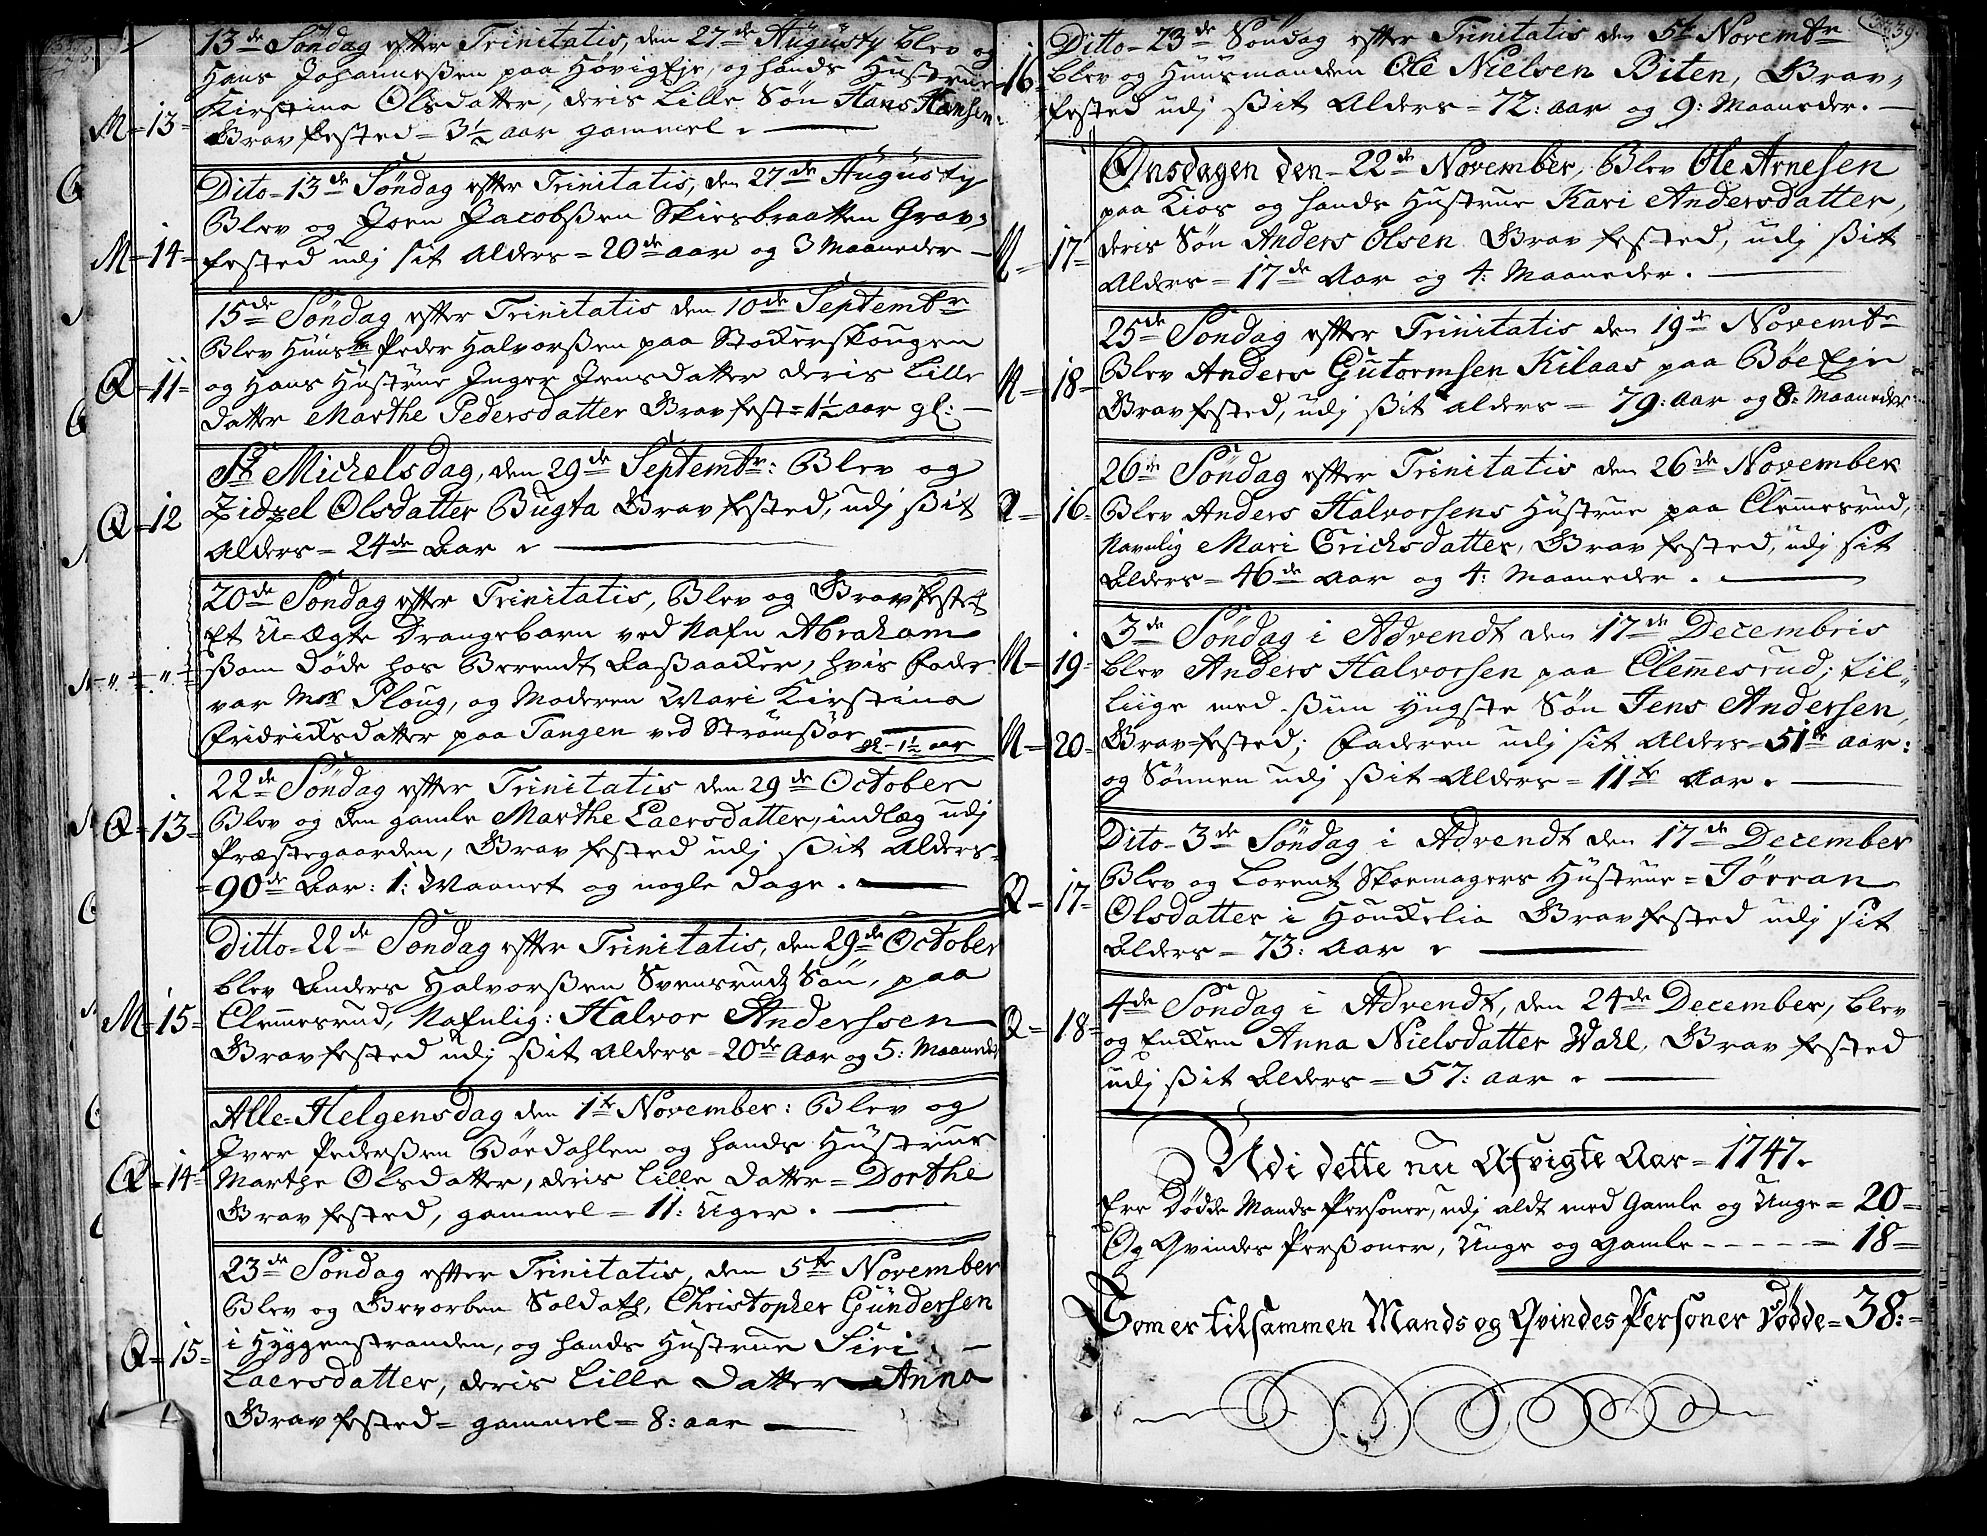 13de Søndag efter Trinitatis, den 27de Augusty blev og
Hans Johanneßen paa Høvig Eje, og hands Hustrue
Kirstina Olsdatter, deris Lille Søn Hans Hansen
M=13= Gravfested = 3½ aar gammel.
Dito=13de Søndag efter Trinitatis, den 27de Augusty
Blev og Joen Jacobßen Skiersbraatten Grav=
M=14= fested udj sit Alders = 20de aar og 3 Maaneder
15de Søndag efter Trinitatis den 10de Septembr
Blev Huusm Peder Halvorßen paa Stokerskougen
Q=11= og Hans Hustrue Inger Jensdatter deris Lille
datter Marthe Pedersdatter Gravfest=1½ aar gl:
St Michelsdag, den 29de Septembr: Blev og
Q=12 Zidzel Olsdatter Bugta Gravfested, udj ßit
Alders=24de Aar
20de Søndag efter Trinitatis, Blev og Gravfestet
Et U=Ægte Drangebarn ved Nafn Abraham
ßom døde hos Berendt Laßaacker, hvis Fader
var Mr Ploug, og Moderen Mari Kirstina
Fridricksdatter paa Tangen ved Strømßøe
gl=1½ aar
22de Søndag efter Trinitatis den 29de October
Q=13= Blev og den gamle Marthe Laersdatter, indlæg udj
Præstegaarden, Gravfested udj ßit Alders
=90de Aar: 1: Maanet og nogle Dage.
Ditto=22de Søndag efter Trinitatis, den 29de October
blev Anders Halvorßen Svensrudz Søn, paa
M=15= Clemmesrud, Nafnlig: Halvor Anderssen
Gravfested udj ßit Alders=20de Aar og 5: Maaneder
Alle=Helgensdag den 1te November: Blev og
Iver Pederßen Bøedahlen og hands Hustrue
Q=14= Marthe Olsdatter, deris Lille datter=Dorthe
Gravfested, gammel=11: Uger.
23de Søndag efter Trinitatis, den 5te November
Blev og Gevorben Soldath, Christopher Gundersen
Q=15= i Hyggenstranden, og hands Hustrue Siri
Laersdatter, deris Lille Datter Anna
Gravfested=gammel=8: aar
339
Ditto=23de Søndag efter Trinitatis den 5te Novembr
16= blev og Huusmanden Ole Nielsen Biten, Grav,
fested udj ßit Alders=72: aar og 9: Maaneder.
Onsdagen den=22de November, Blev Ole Arnesen
paa Kios og hands Hustrue Kari Andersdatter,
M=17= deris Søn Anders Olsen Gravfested, udj ßit
Alders=17de Aar og 4: Maaneder.
25de Søndag efter Trinitatis den 19de Novembr
M=18= Blev Anders Gutormsen Kilaas paa Bøe Eje
Gravfested, udj ßit alders=79: Aar og 8: Maaneder
26de Søndag efter Trinitatis den 26de November
Q=16= Blev Anders Halvorsens Hustrue paa Clemmesrud,
Navnlig Mari Erichsdatter, Gravfested, udj sit
Alders=46de Aar og 4: Maaneder.
3de Søndag i Advendt den 17de Decembris
M=19= blev Anders Halvorsen paa Clemmesrud; til,
Liige med ßiin yngste Søn Jens Andersen,
M=20= Gravfested; Faderen udj sit Alders=51te aar:
og Sønnen udj ßit Alders=11te Aar.
Dito=3de Søndag i Advendt den 17de December
Q=17= Blev og Lorentz Skoemagers Hustrue=Jørran
Olsdatter i Hønckelia Gravfested udj sit
Alders=73: Aar
4de Søndag i Advendt, den 24de December, blev
Q=18= og Encken Anna Nielsdatter Wahl, Gravfested
udj ßit Alders=57: aar.
Udi dette nu Afvigte Aar=1747.
Ere Dødde Mands Personer, udj aldt med Gamle og Unge=20=
Og Qvindes Perßoner, Unge og Gamle----=18=
Som er tilsammen Mands og Qvindes Personer dødde=38:=